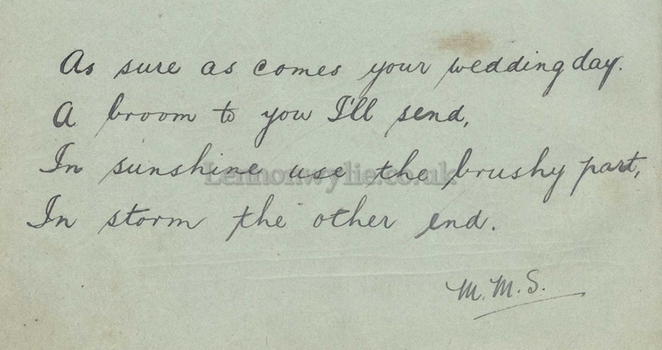 As sure as comes your wedding day.
A broom to you I'll send,
In sunshine use the brushy part,
Lennonwylie.co.uk
In storm the other end.
M. M. S.